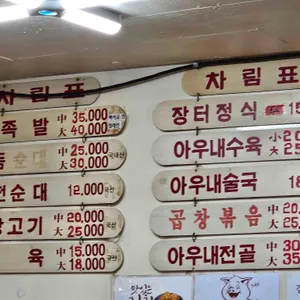 차림표
족발 中 35,000 大 40,000
순대 中 25,000 大 30,000 국내산
순대 12,000
고기 中 20,000 大 25,000
육 中 15,000 大 18,000
차림표
장터정식
아우내수육 小 2 大 25
아우내술국 18,
곱창볶음 中 20, 大 25,
아우내전골 中 30 大 35
맛있는